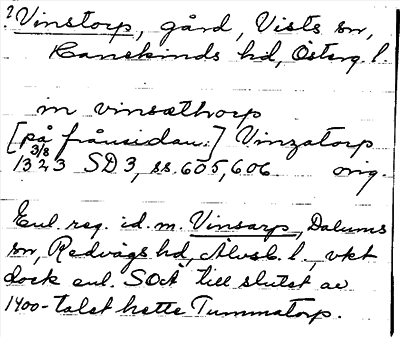 ? Vinstorp, gård, Vists sn,
Hanekinds hd, Österg. l.
in vinsæthorp
[på frånsidan:] Vinzatorp
3/8
1323 SD 3, ss. 605, 606 orig.
Enl. reg. id. m. Vinsarp, Dalums
sn, Redvägs hd, Älvsb. l., vkt
dock enl. SOÄ till slutet av
1400-talet hette Tummatorp.